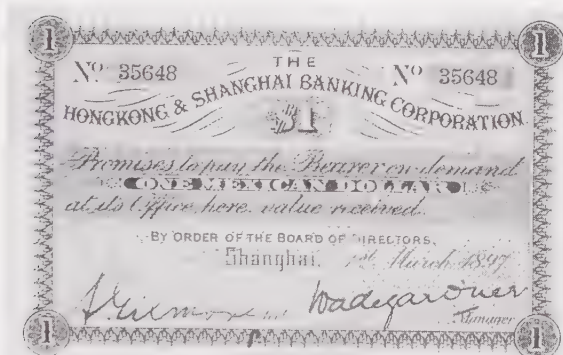 1 1
THE
No 35648 No 35648
HONGKONG & SHANGHAI BANKING CORPORATION
$1
Promises to pay the Bearer on demand
ONE MEXICAN DOLLAR
at its Office here value received.
BY ORDER OF THE BOARD OF DIRECTORS,
Shanghai, 1st March 1897
Wade Gardner
Manager
1 1